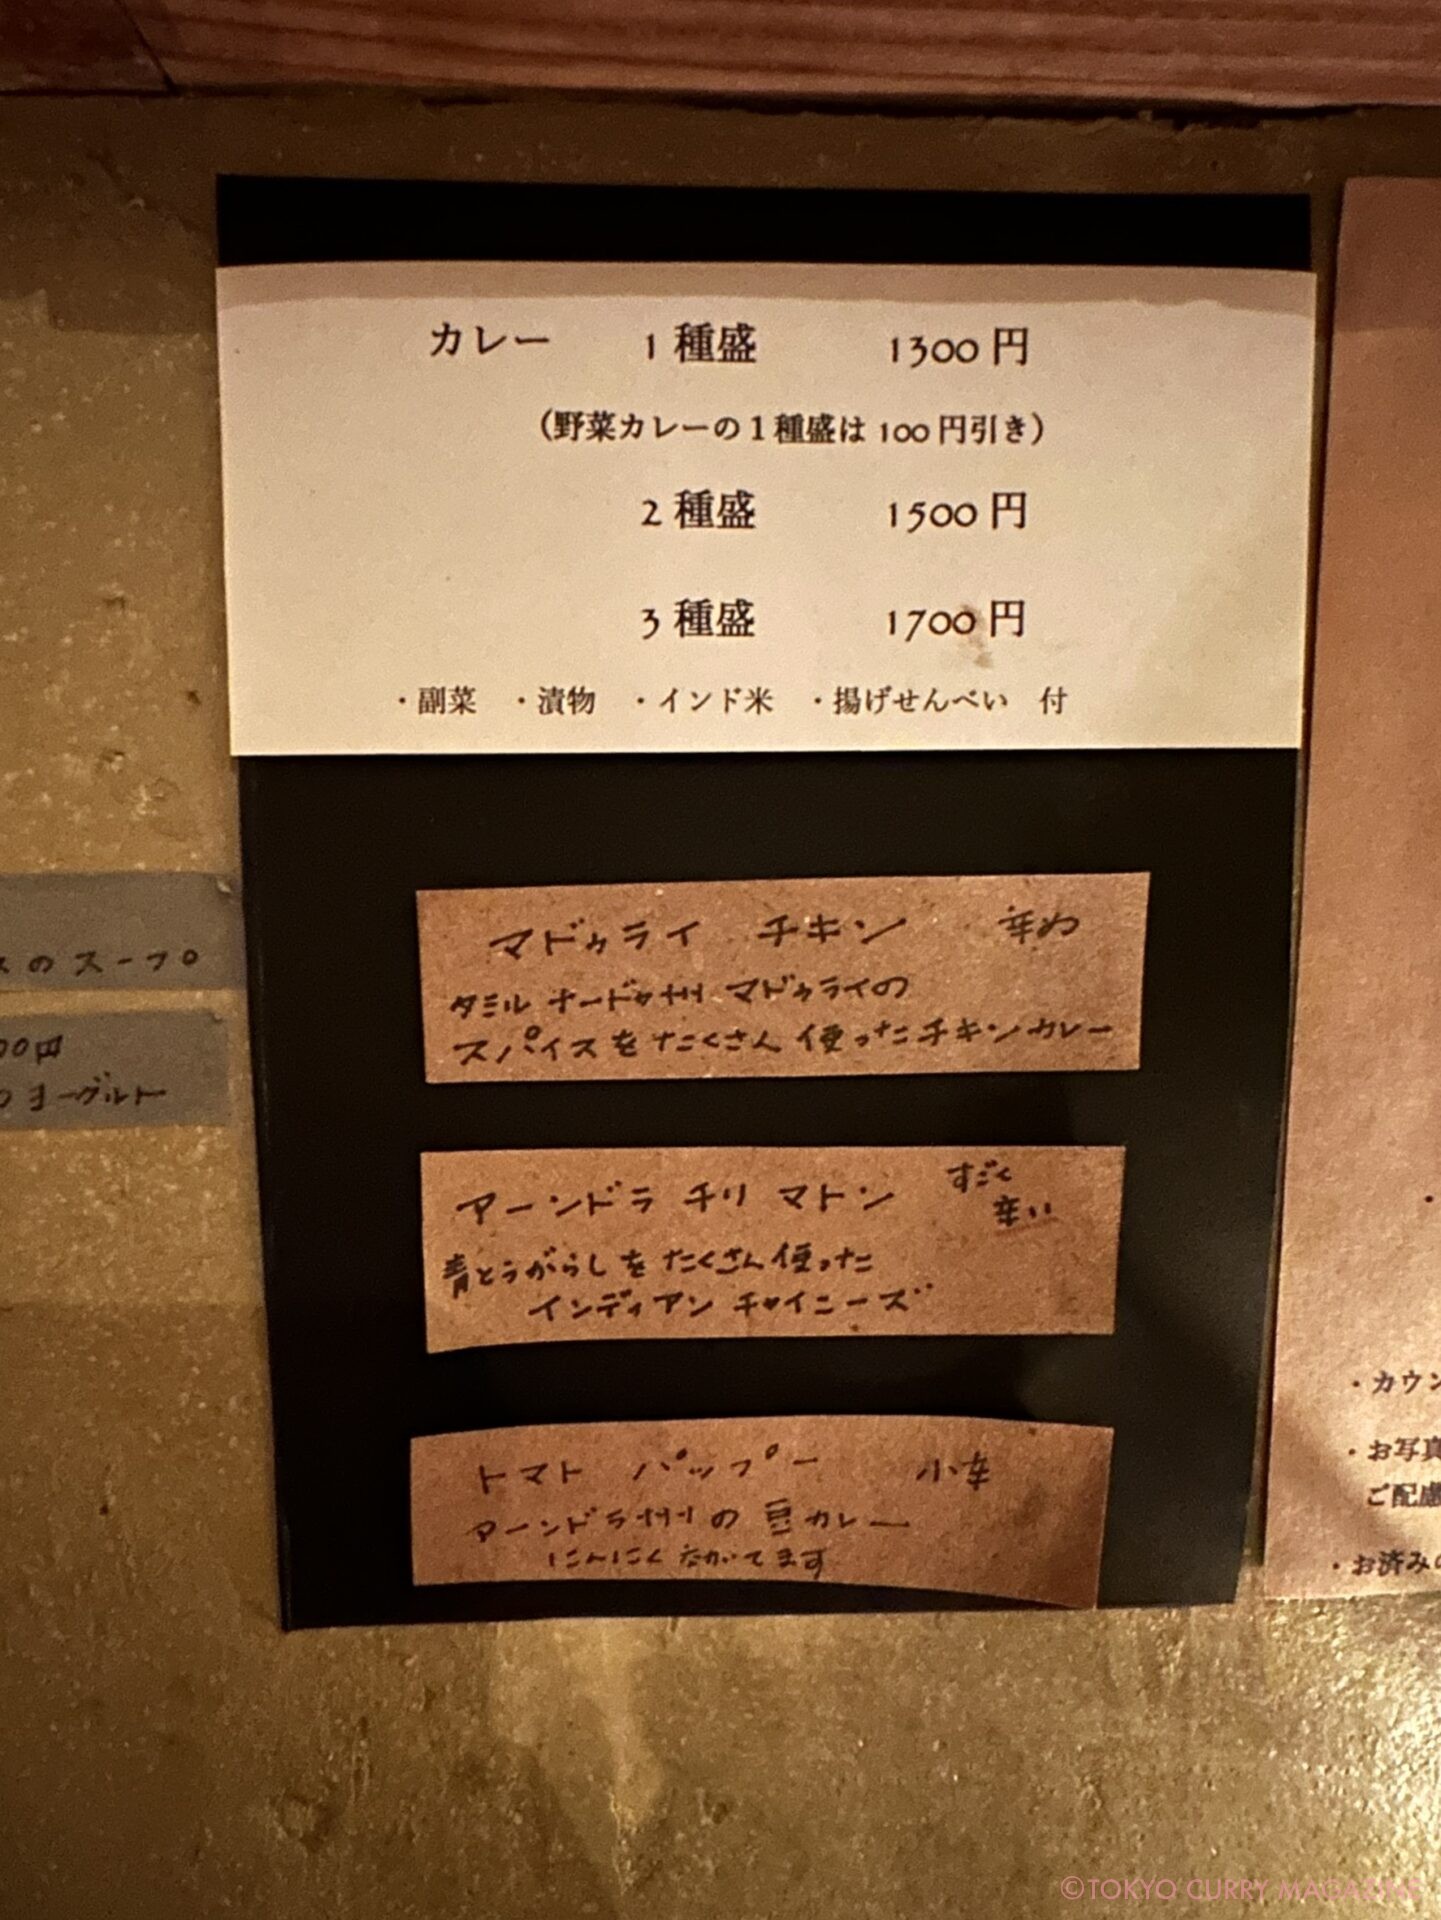 カレー 1種盛 1300円
（野菜カレーの1種盛は100円引き）
2種盛 1500円
3種盛 1700円
・副菜 ・漬物 ・インド米 ・揚げせんべい 付
マドゥライ チキン 辛め
タミル ナードゥ州 マドゥライの
スパイスをたくさん使ったチキンカレー
アーンドラ チリ マトン すごく
辛い
青とうがらしをたくさん使った
インディアン チャイニーズ
トマト パップー 小辛
アーンドラ州の豆カレー
にんにく
スのスープ
00円
ヨーグルト
・カウン
・お写真
ご配慮
・お済みの
©TOKYO CURRY MAGAZINE